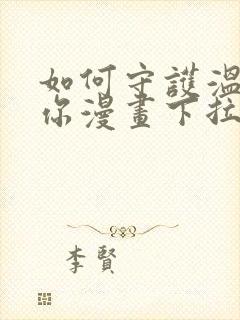 如何守護溫
你漫畫下拉
李賢